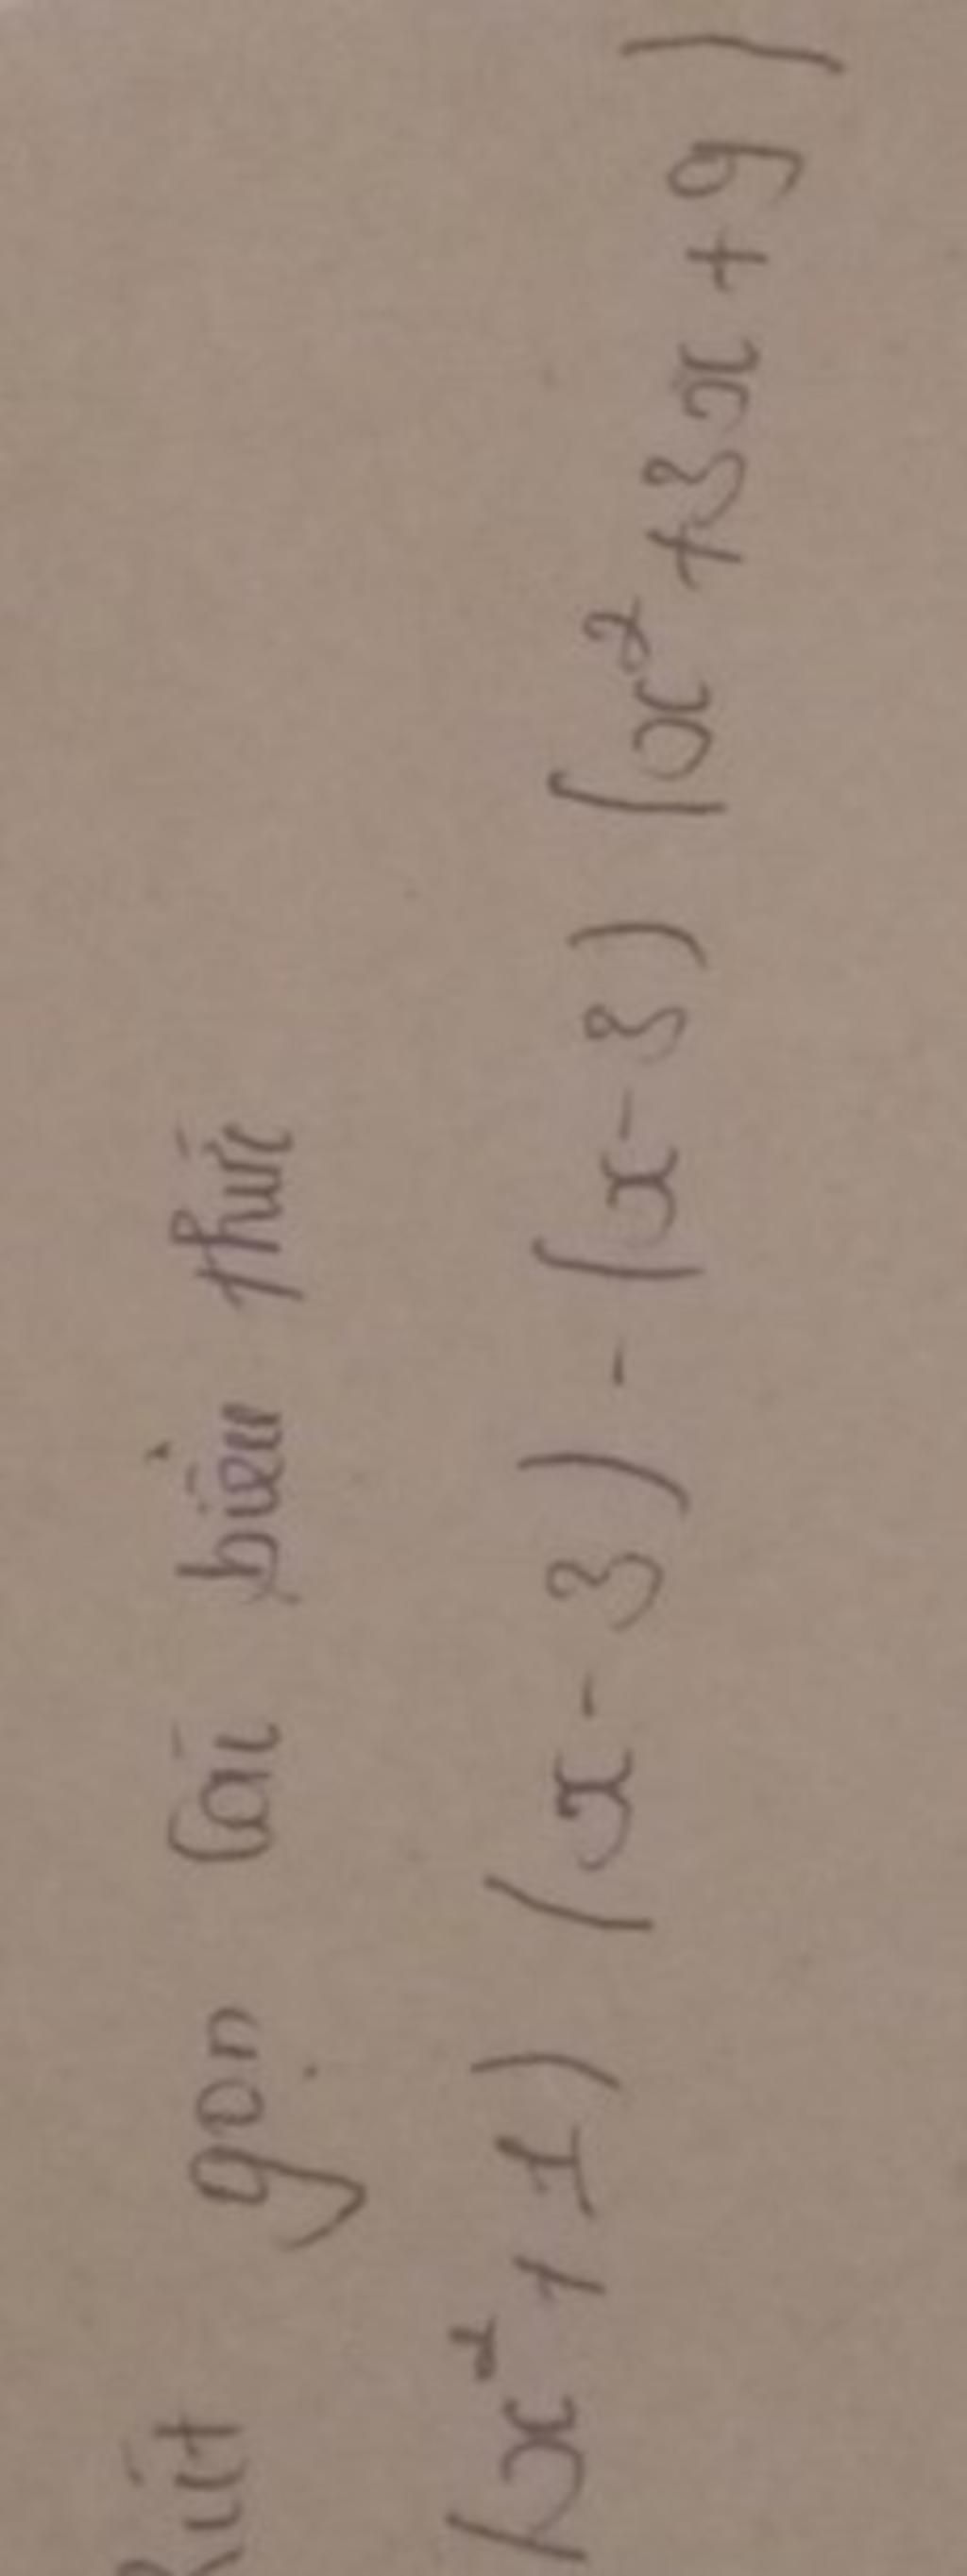 Rút gọn các biểu thức
(x² + 1) (x - 3) - (x - 3) (x² + 3x + 9)